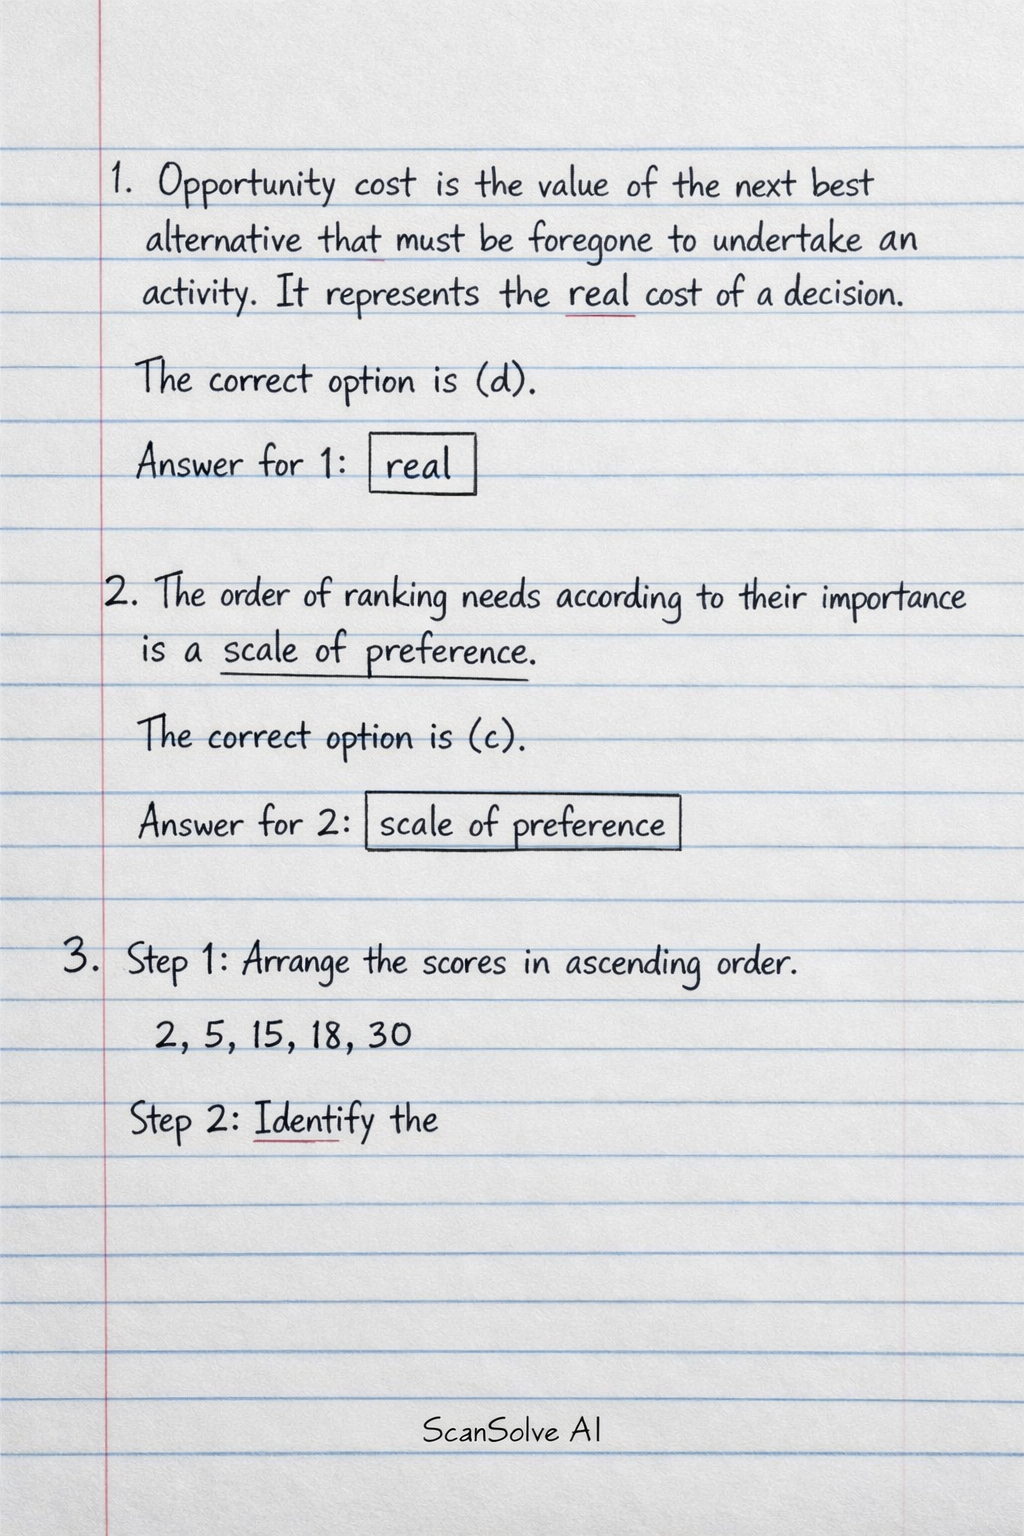 1. Opportunity cost is the value of the next best
alternative that must be foregone to undertake an
activity. It represents the real cost of a decision.
The correct option is (d).
Answer for 1: real
2. The order of ranking needs according to their importance
is a scale of preference.
The correct option is (c).
Answer for 2: scale of preference
3. Step 1: Arrange the scores in ascending order.
2, 5, 15, 18, 30
Step 2: Identify the
ScanSolve AI